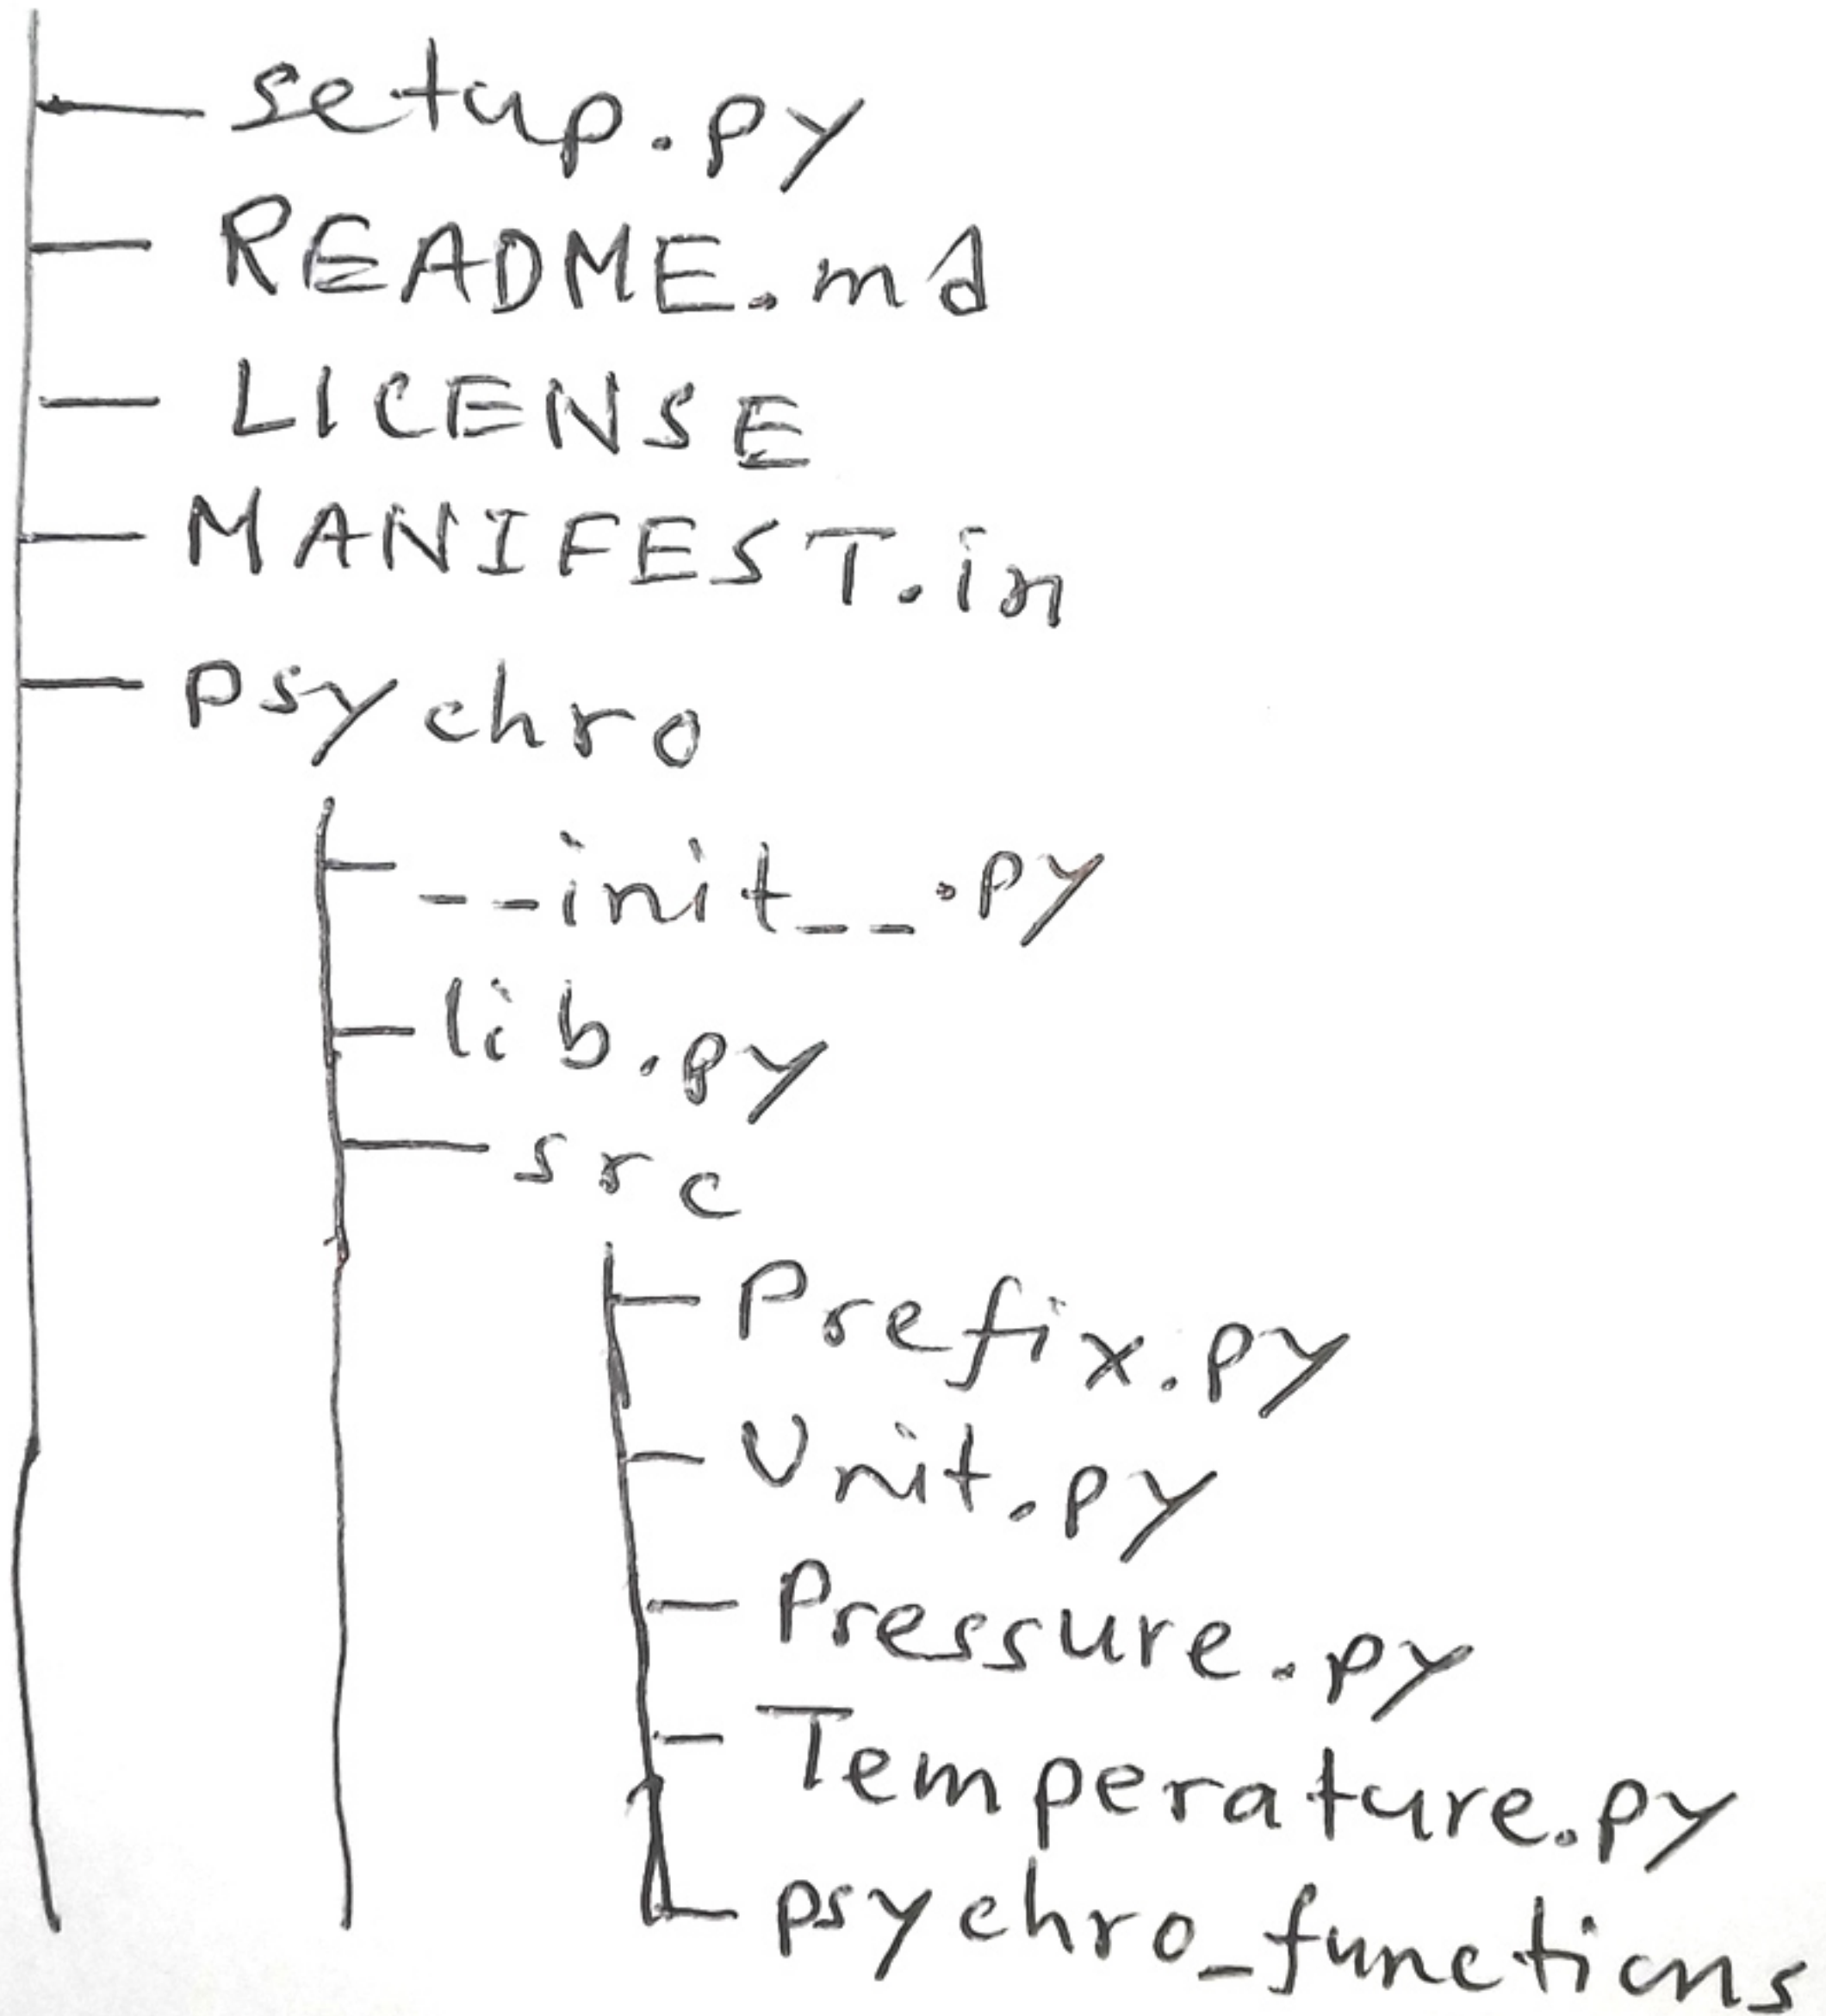 setup.py
README.md
LICENSE
MANIFEST.in
psychro
__init__.py
lib.py
src
Prefix.py
Unit.py
Pressure.py
Temperature.py
psychro_functions